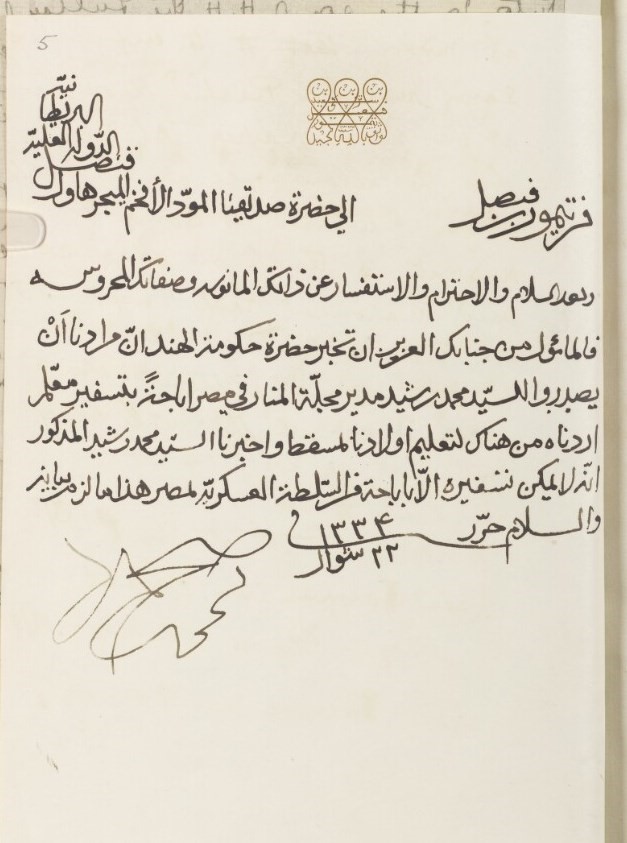 5
من تيمور بن فيصل
الى حضرة صديقنا المودّ الأفخم الميجر هاول
قنصل
الدولة العليّة
البريطا
نيّه
وبعد السلام والاحترام والاستفسار عن ذاتك المانوسه وصفاتك المحروسه
فالمامول من جنابك العزيز ان تخبر حضرة حكومة الهند انّ مرادنا اَنْ
يصدروا للسيّد محمد رشيد مدير مجلّة المنار في مصر اباحةً بتسفير معّلم
اردناه من هناك لتعليم اولادنا لمسقط واخبرنا السيّد محمد رشيد المذكور
انه لا يمكن تسفيره الّا باباحة من السّلطة العسكريّة لمصر هذا ما لزم بيانه
والسلام حرّر
١٣٣٤
٢٢ شوال